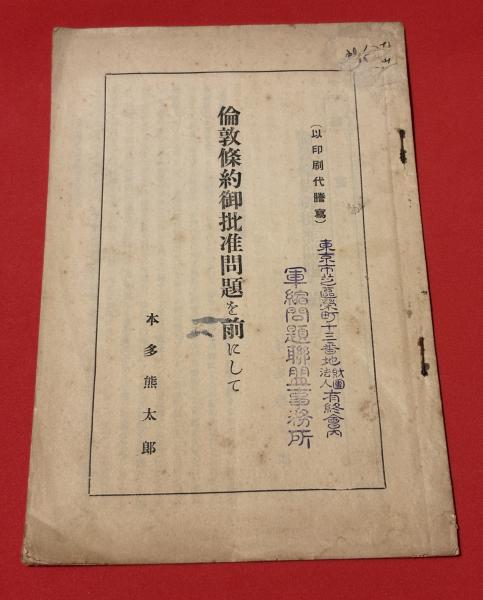 (以印刷代謄寫)
東京市芝區榮町十三番地財團法人有終會內
軍縮問題聯盟事務所
倫敦條約御批准問題を前にして
本多熊太郎